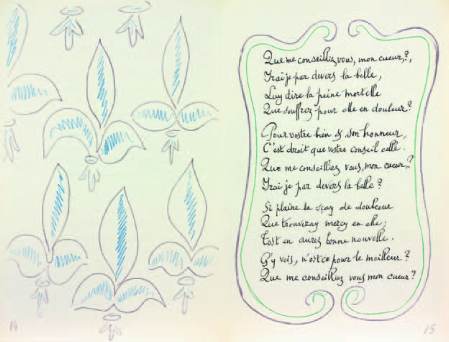 Que me conseillez vous, mon cueur?,
Irai je par devers la belle,
Luy dire la peine mortelle
Que souffrez pour elle en douleur?
Pour vostre bien & son honneur,
C'est droit que votre conseil celle.
Que me conseilliez vous, mon cueur?
Irai je par devers la belle?
Si plaine la sçay de douleur
Que trouveray mercy en elle,
Tost en aurez bonne nouvelle.
G'y vois, n'est ce pour le meilleur?
Que me conseillez vous mon cueur?
14
15